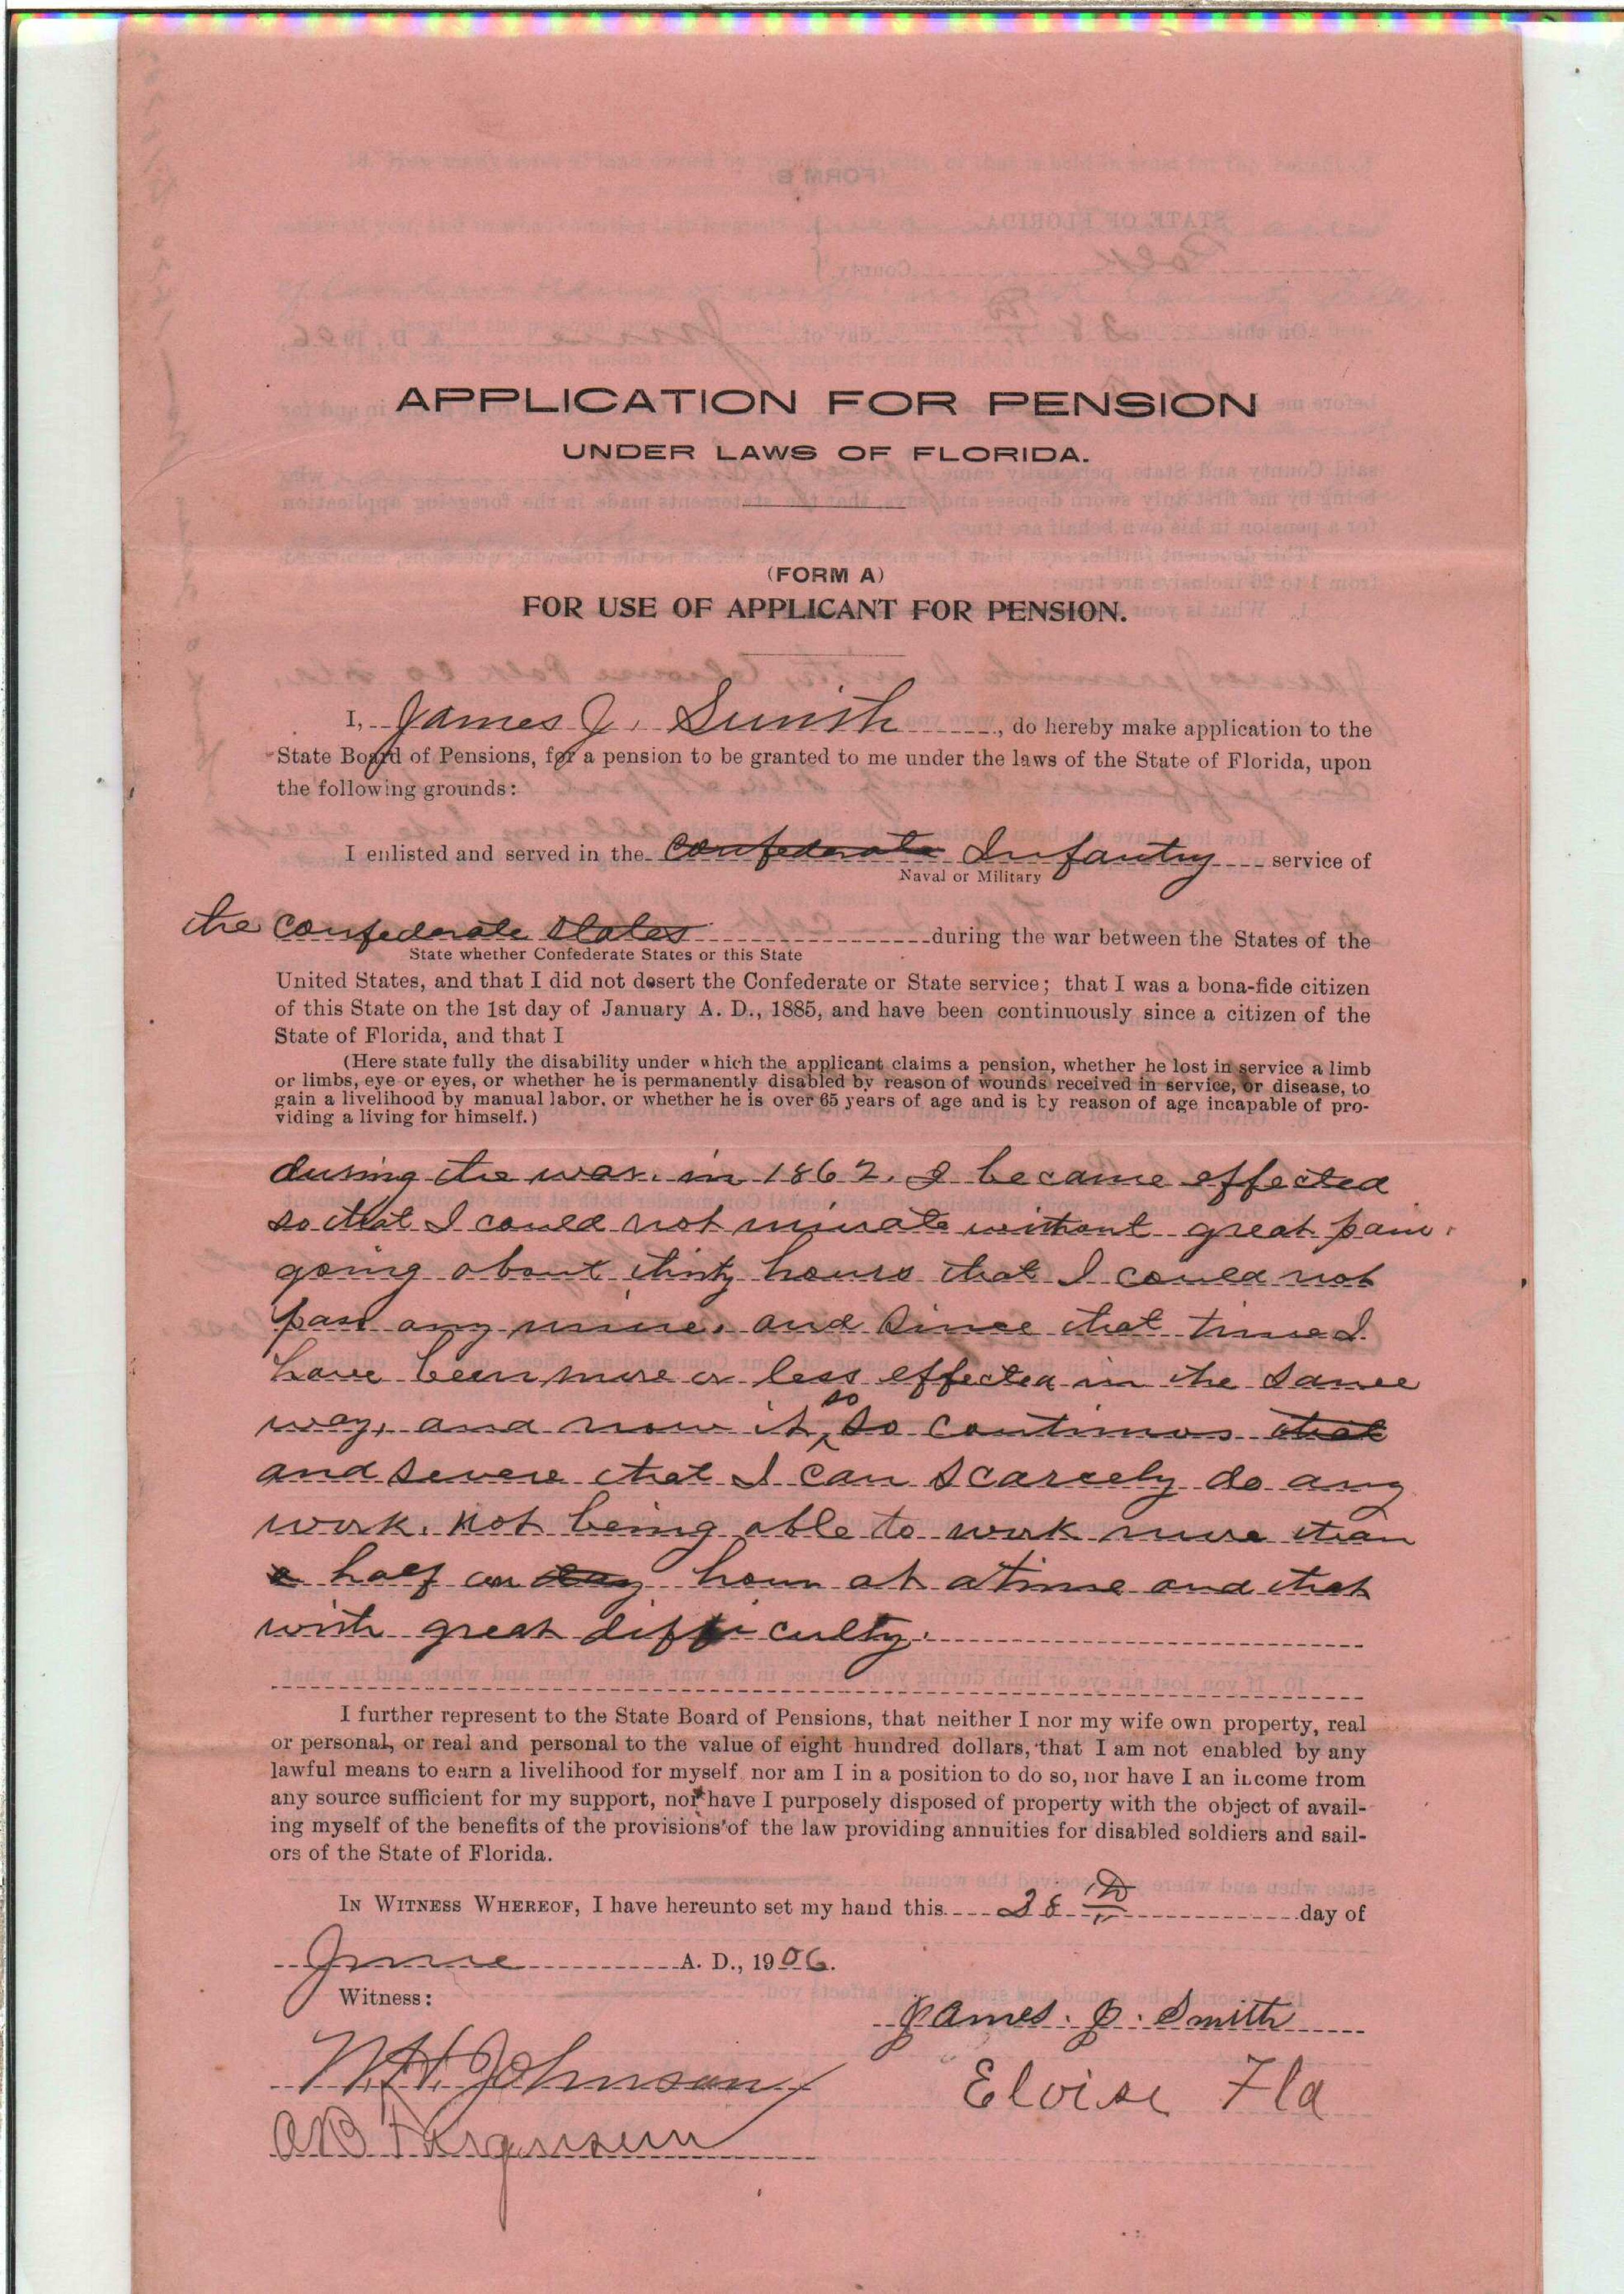 APPLICATION FOR PENSION
UNDER LAWS OF FLORIDA.
(FORM A)
FOR USE OF APPLICANT FOR PENSION.
I, James J. Smith, do hereby make application to the
State Board of Pensions, for a pension to be granted to me under the laws of the State of Florida, upon
the following grounds:
I enlisted and served in the confederate Infantry service of
Naval or Military
the Confederate States during the war between the States of the
State whether Confederate States or this State
United States, and that I did not desert the Confederate or State service; that I was a bona-fide citizen
of this State on the 1st day of January A. D., 1885, and have been continuously since a citizen of the
State of Florida, and that I
(Here state fully the disability under which the applicant claims a pension, whether he lost in service a limb
or limbs, eye or eyes, or whether he is permanently disabled by reason of wounds received in service, or disease, to
gain a livelihood by manual labor, or whether he is over 65 years of age and is by reason of age incapable of pro-
viding a living for himself.)
during the war. in 1862. I became effected
so that I could not urinate without great pain.
going about thirty hours that I could not
pass any urine. and since that time I
have been more or less effected in the same
way, and now it so so continuos that
and severe that I can scarcely do any
work. not being able to work more than
a half an day hour at a time and that
with great difficulty.
I further represent to the State Board of Pensions, that neither I nor my wife own property, real
or personal, or real and personal to the value of eight hundred dollars, that I am not enabled by any
lawful means to earn a livelihood for myself nor am I in a position to do so, nor have I an income from
any source sufficient for my support, nor have I purposely disposed of property with the object of avail-
ing myself of the benefits of the provisions of the law providing annuities for disabled soldiers and sail-
ors of the State of Florida.
IN WITNESS WHEREOF, I have hereunto set my hand this 28 th day of
June A. D., 1906.
Witness:
James. J. Smith
Johnson
Eloise Fla